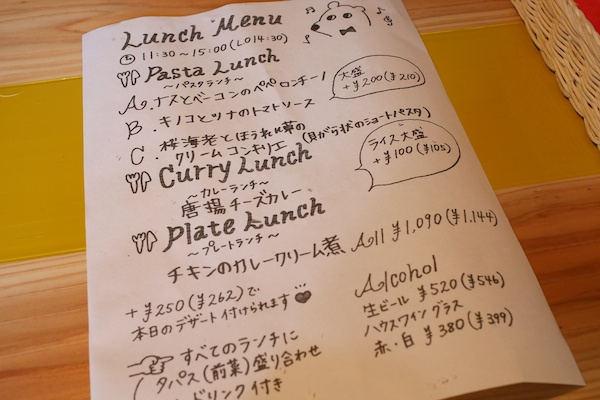 Lunch Menu
11:30～15:00 (LO14:30)
Pasta Lunch
～パスタランチ～
A. ナスとベーコンのペペロンチーノ
大盛
+¥200(¥210)
B. キノコとツナのトマトソース
C. 桜海老とほうれん草の
クリームコンキリエ (貝がら状のショートパスタ)
Curry Lunch
～カレーランチ～
ライス大盛
+¥100(¥105)
唐揚チーズカレー
Plate Lunch
～プレートランチ～
チキンのカレークリーム煮
All ¥1,090(¥1,144)
+¥250(¥262)で
本日のデザート付けられます
Alcohol
生ビール ¥520(¥546)
ハウスワイングラス
赤・白 ¥380(¥399)
すべてのランチに
タパス(前菜)盛り合わせ
ドリンク付き